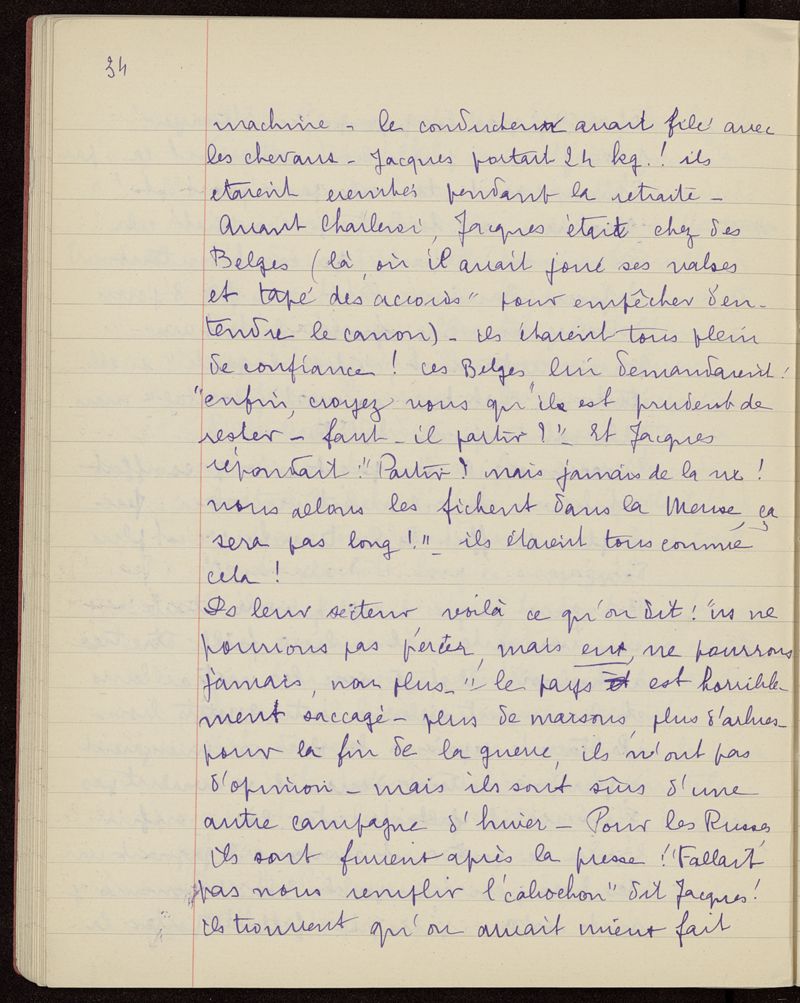 34
machine - le conducteur avait filé avec
les chevaux - Jacques portait 24 kg.! ils
étaient ereintés pendant la retraite -
Avant Charleroi, Jacques était chez des
Belges (là où il avait joué ses valses
et tapé des accords" pour empêcher d'en-
tendre le canon) - ils étaient tous plein
de confiance! ces Belges lui demandaient:
"enfin, croyez vous qu'il est prudent de
rester - faut-il partir?" Et Jacques
répondait: "Partir? mais jamais de la vie!
nous allons les fichent dans la Meuse, ça
sera pas long!" - ils étaient tous comme
cela!
Ds leur secteur voilà ce qu'on dit: "ns ne
pouvons pas percer, mais eux, ne pourrons
jamais, non plus -" le pays est horrible-
ment saccagé - plus de maisons, plus d'arbres -
pour la fin de la guerre, ils n'ont pas
d'opinion - mais ils sont sûrs d'une
autre campagne d'hiver - Pour les Russes,
ils sont furieux après la presse! "Fallait
pas nous remplir l'cabochon" dit Jacques!
ils trouvent qu'on aurait mieux fait